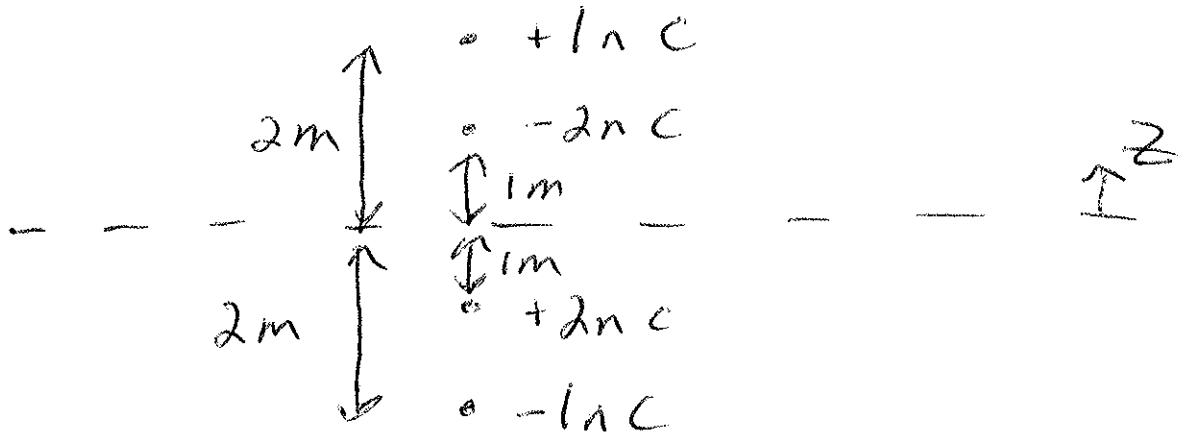 +1nC
2m
-2nC
1m
Z
1m
2m
+2nC
-1nC